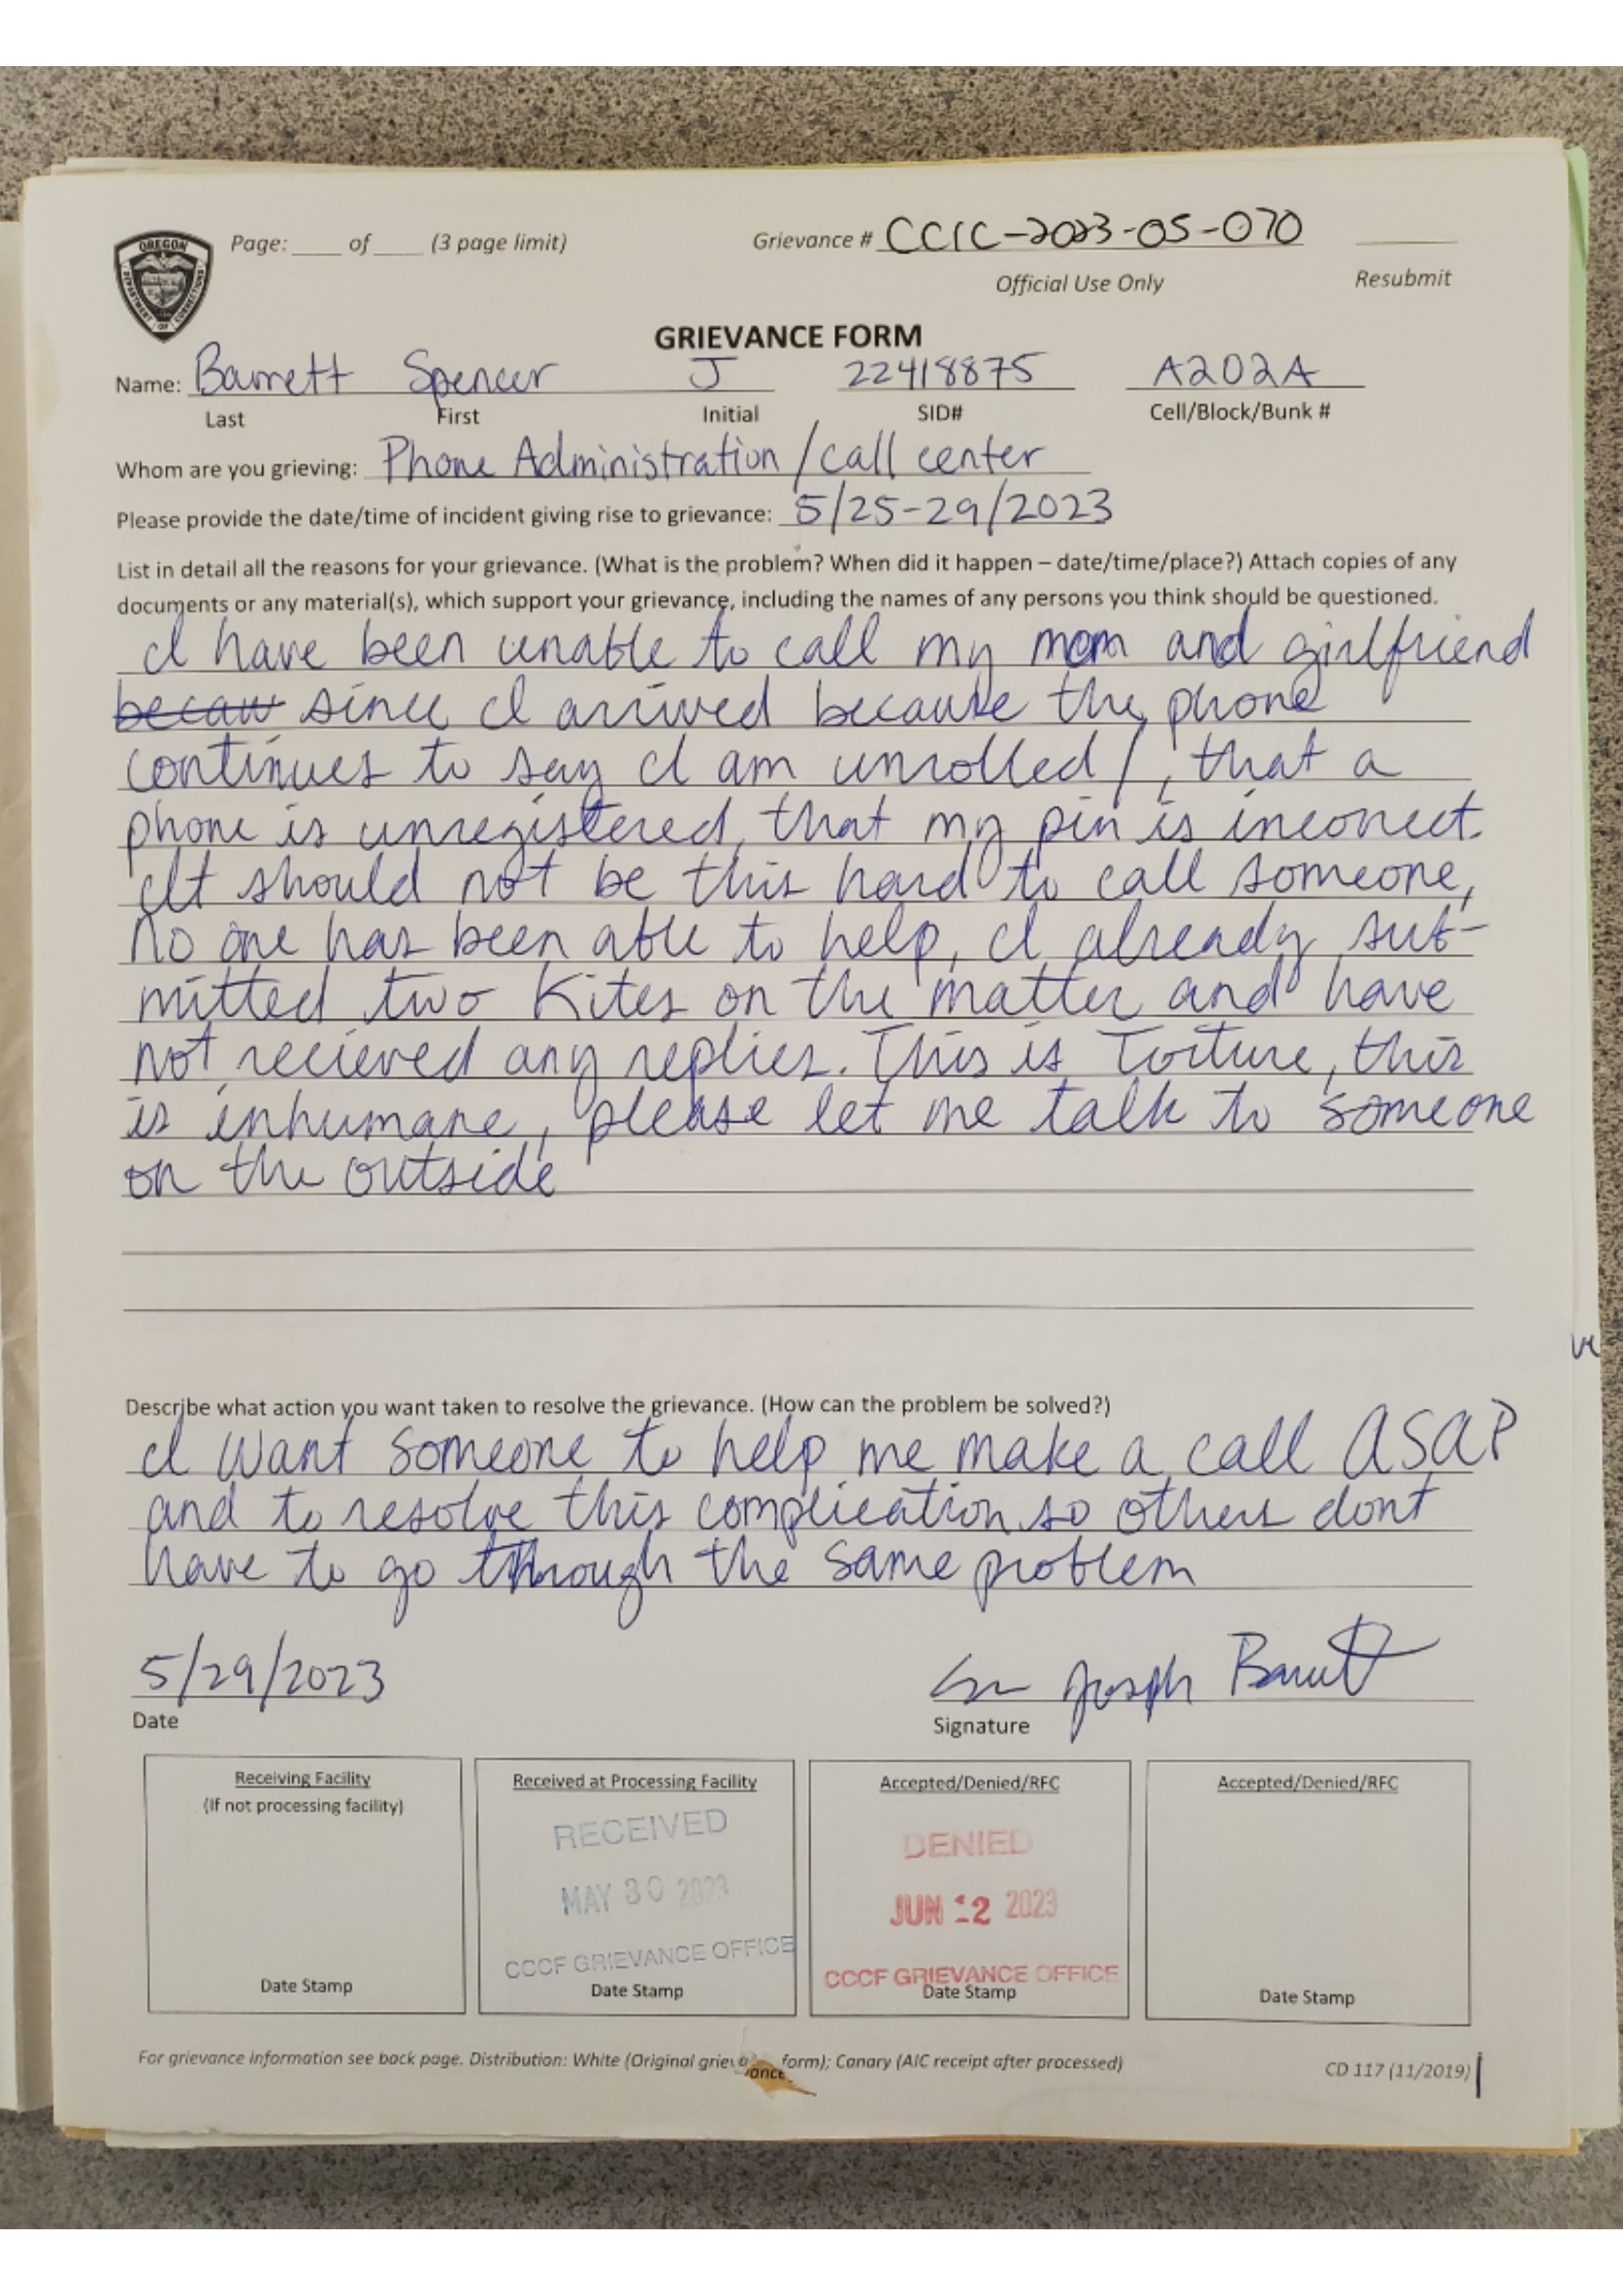 OREGON
DEPARTMENT OF CORRECTIONS
Page: ____ of ____ (3 page limit) Grievance # CCIC-2023-05-070
Official Use Only Resubmit
GRIEVANCE FORM
Name: Barrett Spencer J 22418875 A202A
Last First Initial SID# Cell/Block/Bunk #
Whom are you grieving: Phone Administration / call center
Please provide the date/time of incident giving rise to grievance: 5/25-29/2023
List in detail all the reasons for your grievance. (What is the problem? When did it happen – date/time/place?) Attach copies of any
documents or any material(s), which support your grievance, including the names of any persons you think should be questioned.
I have been unable to call my mom and girlfriend
becau since I arrived because the phone
continues to say I am unrolled /, that a
phone is unregistered, that my pin is incorrect.
It should not be this hard to call someone,
No one has been able to help, I already sub-
mitted two Kites on the matter and have
not recieved any replies. This is Torture, this
is inhumane, please let me talk to someone
on the outside
Describe what action you want taken to resolve the grievance. (How can the problem be solved?)
I want someone to help me make a call ASAP
and to resolve this complication so others dont
have to go through the same problem
5/29/2023 Joseph Barrett
Date Signature
Receiving Facility Received at Processing Facility Accepted/Denied/RFC Accepted/Denied/RFC
(If not processing facility)
RECEIVED DENIED
MAY 30 2023 JUN 12 2023
CCCF GRIEVANCE OFFICE CCCF GRIEVANCE OFFICE
Date Stamp Date Stamp Date Stamp Date Stamp
For grievance information see back page. Distribution: White (Original grievance form); Canary (AIC receipt after processed) CD 117 (11/2019)